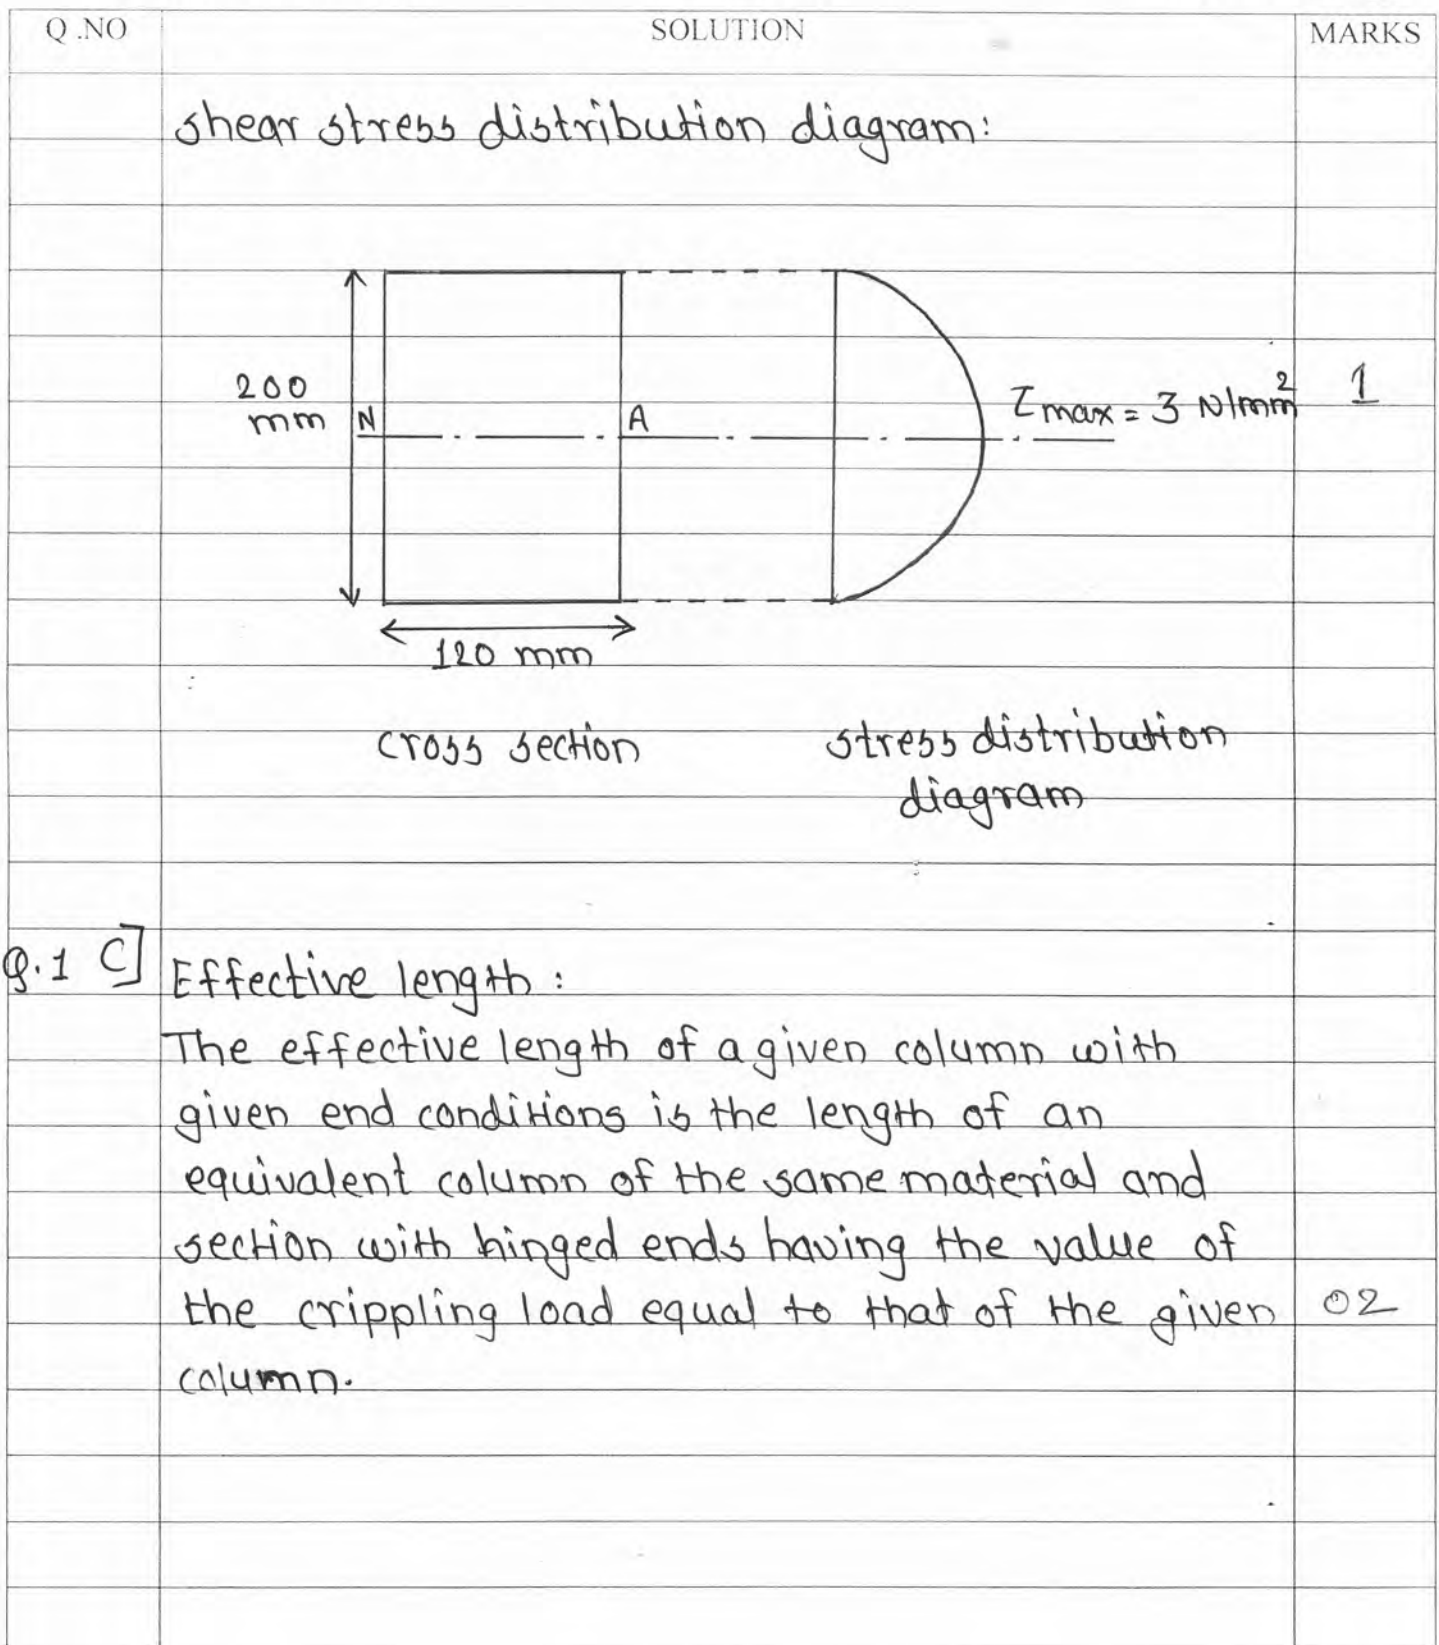 Q.NO SOLUTION MARKS
shear stress distribution diagram:
200
mm
N
A
τmax = 3 N/mm²
1
120 mm
cross section
stress distribution
diagram
Q.1 C] Effective length :
The effective length of a given column with
given end conditions is the length of an
equivalent column of the same material and
section with hinged ends having the value of
the crippling load equal to that of the given 02
column.